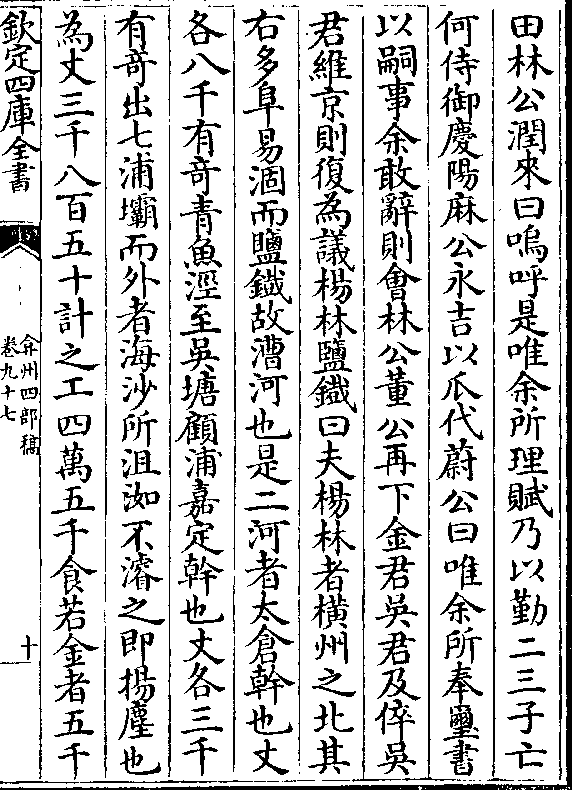 田林公潤來曰嗚呼是唯余所理賦乃以勤二三子亡
何侍御慶陽麻公永吉以爪代蔚公曰唯余所奉璽書
以嗣事余敢辭則會林公董公再下金君吳君及倅吳
君維京則復為議楊林鹽鐵曰夫楊林者橫州之北其
右多阜易涸而鹽鐵故漕河也是二河者太倉幹也丈
各八千有竒青魚涇至吳塘顧浦嘉定幹也丈各三千
有竒出七浦壩而外者海沙所沮洳不濬之即揚塵也
為丈三千八百五十計之工四萬五千食若金者五千
欽定四庫全書
弇州四部稿
卷九十七
十